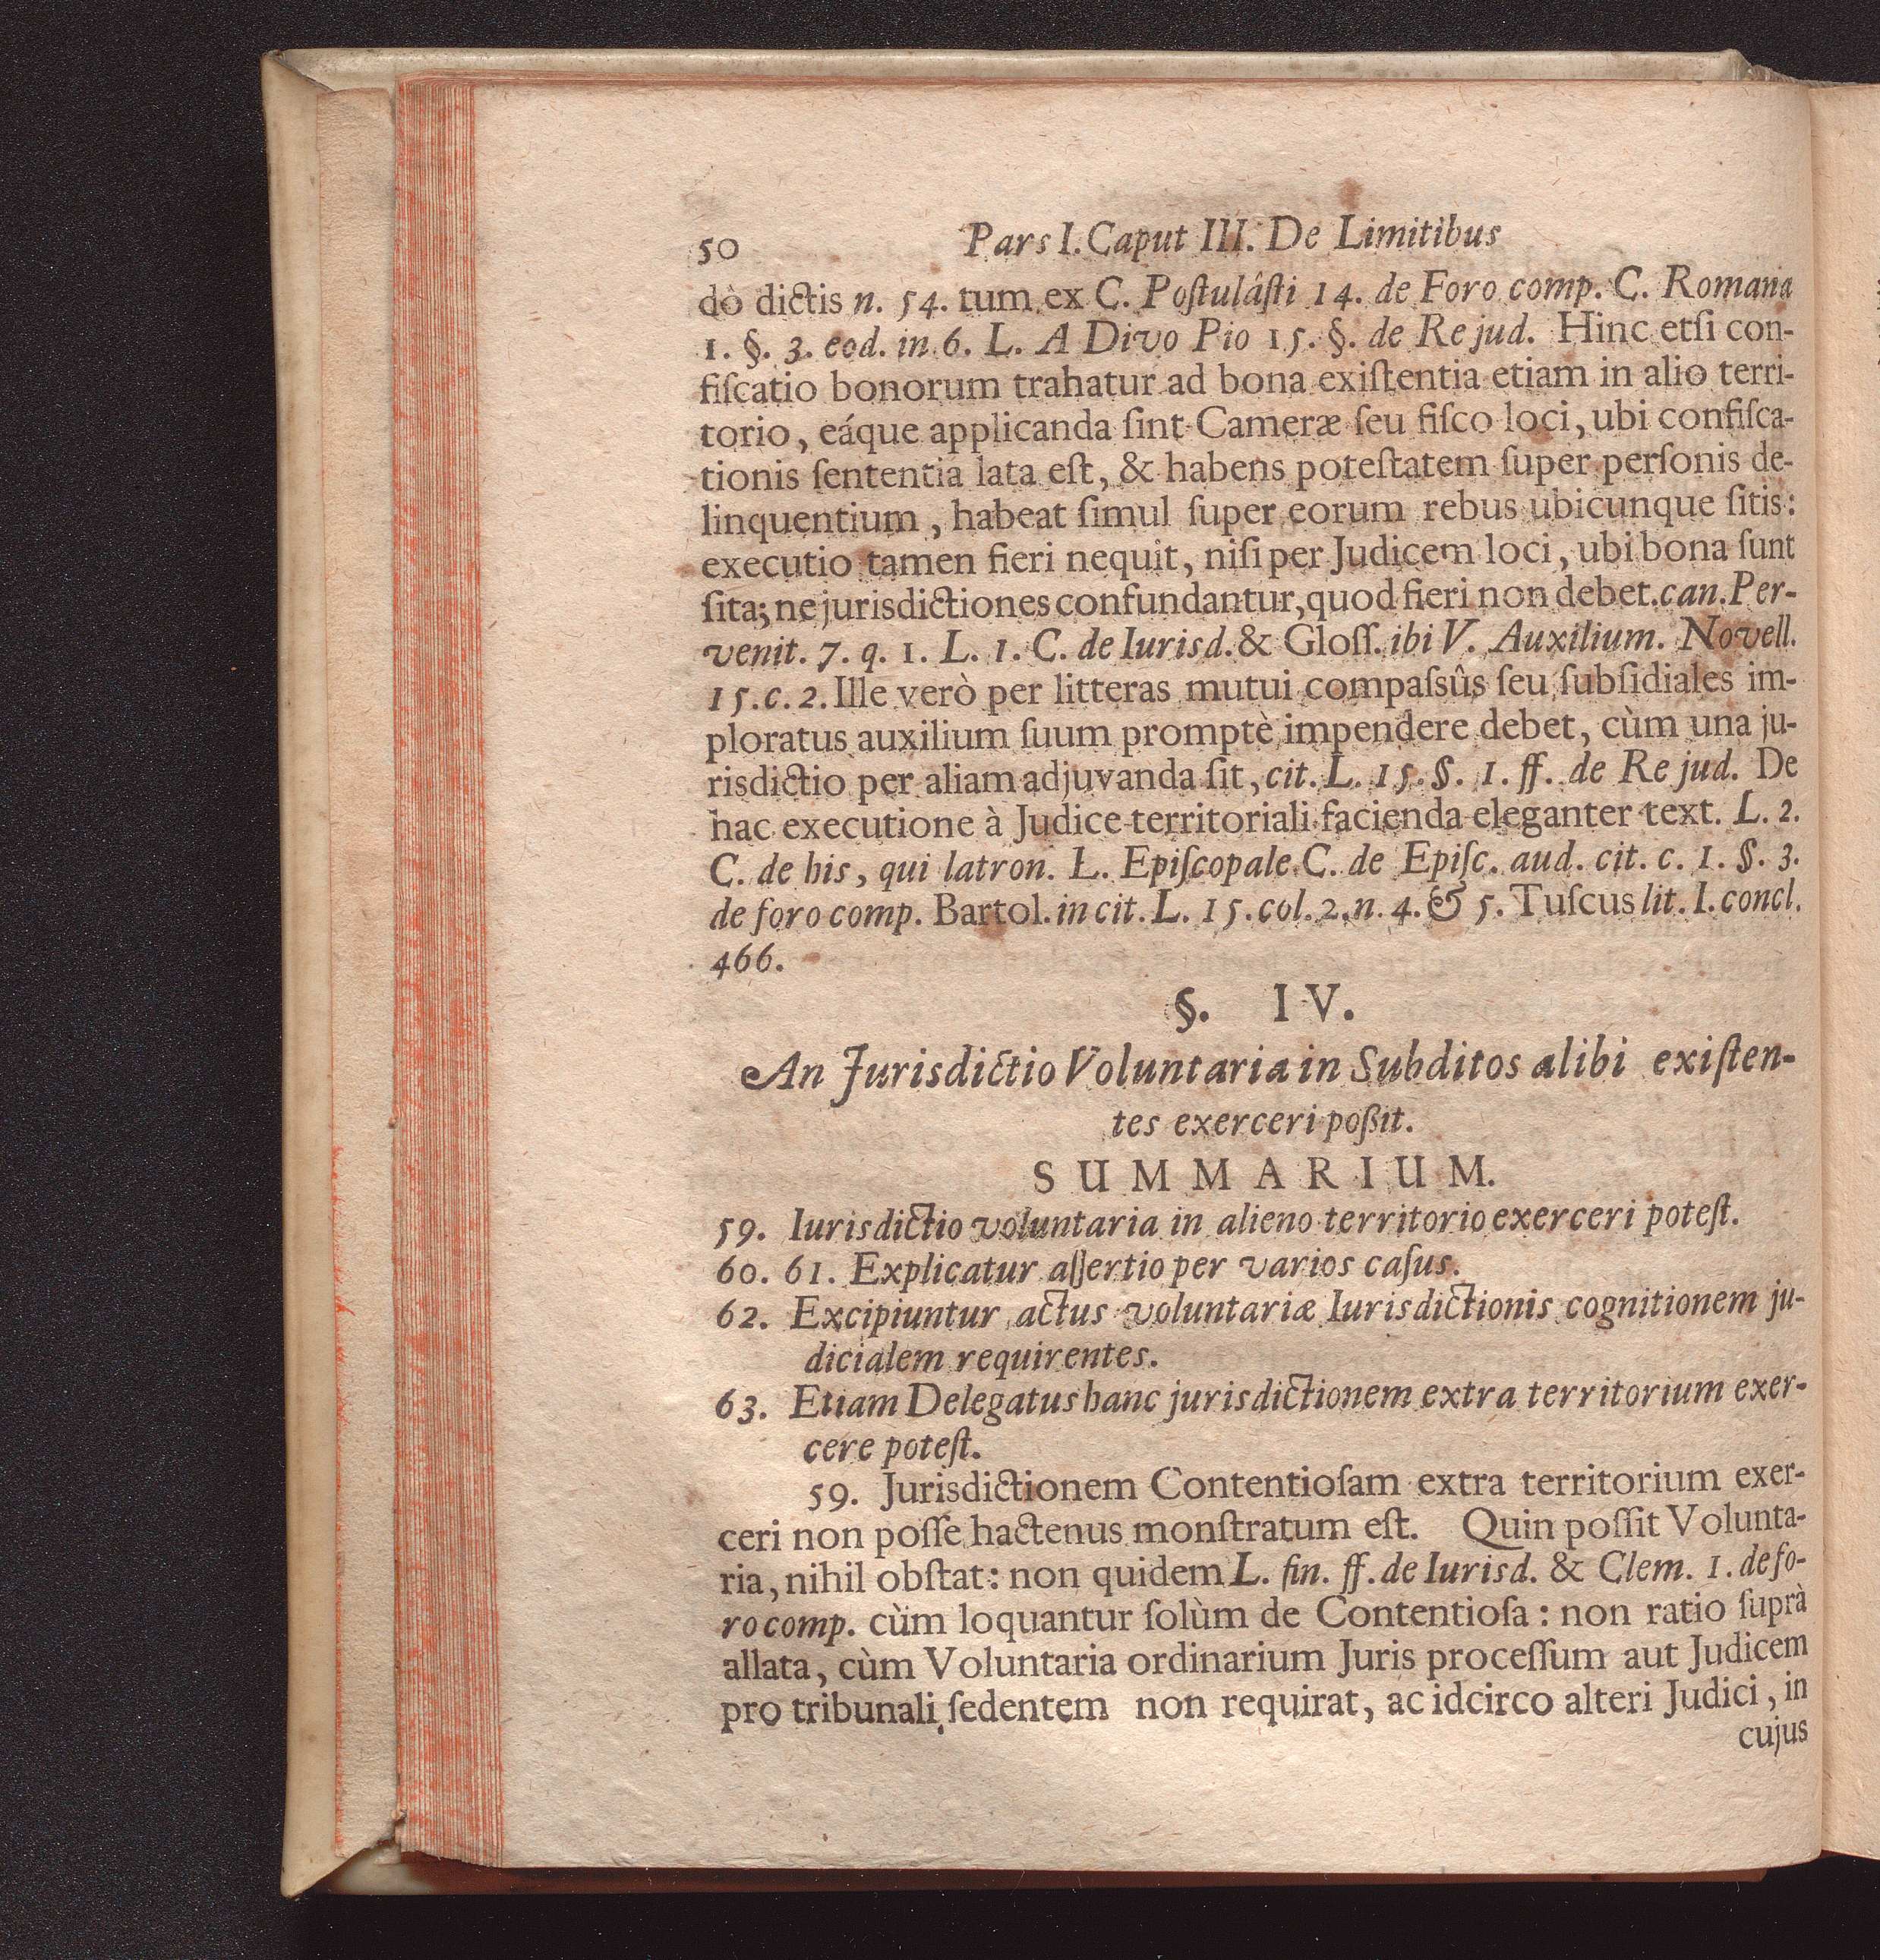 50 Pars I. Caput III. De Limitibus
dò dictis n. 54. tum ex C. Poſtulâſti 14. de Foro comp. C. Romana
1. §. 3. eod. in 6. L. A Divo Pio 15. §. de Re jud. Hinc etſi con-
fiſcatio bonorum trahatur ad bona exiſtentia etiam in alio terri-
torio, eáque applicanda ſint Cameræ ſeu fiſco loci, ubi confiſca-
tionis ſententia lata eſt, & habens poteſtatem ſuper perſonis de-
linquentium, habeat ſimul ſuper eorum rebus ubicunque ſitis:
executio tamen fieri nequit, niſi per Judicem loci, ubi bona ſunt
ſita; ne jurisdictiones confundantur, quod fieri non debet. can. Per-
venit. 7. q. 1. L. 1. C. de Iurisd. & Gloſſ. ibi V. Auxilium. Novell.
15. c. 2. Ille verò per litteras mutui compaſsûs ſeu ſubſidiales im-
ploratus auxilium ſuum promptè impendere debet, cùm una ju-
risdictio per aliam adjuvanda ſit, cit. L. 15. §. 1. ff. de Re jud. De
hac executione à Judice territoriali facienda eleganter text. L. 2.
C. de his, qui latron. L. Epiſcopale C. de Epiſc. aud. cit. c. 1. §. 3.
de foro comp. Bartol. in cit. L. 15. col. 2. n. 4. & 5. Tuſcus lit. I. concl.
466.
§. IV.
An Jurisdictio Voluntaria in Subditos alibi exiſten-
tes exerceri poßit.
SUMMARIUM.
59. Iurisdictio voluntaria in alieno territorio exerceri poteſt.
60. 61. Explicatur aſſertio per varios caſus.
62. Excipiuntur actus voluntariæ Iurisdictionis cognitionem ju-
dicialem requirentes.
63. Etiam Delegatus hanc jurisdictionem extra territorium exer-
cere poteſt.
59. Jurisdictionem Contentioſam extra territorium exer-
ceri non poſſe hactenus monſtratum eſt. Quin poſſit Volunta-
ria, nihil obſtat: non quidem L. fin. ff. de Iurisd. & Clem. 1. de fo-
ro comp. cùm loquantur ſolùm de Contentioſa: non ratio ſuprà
allata, cùm Voluntaria ordinarium Juris proceſſum aut Judicem
pro tribunali ſedentem non requirat, ac idcirco alteri Judici, in
cujus